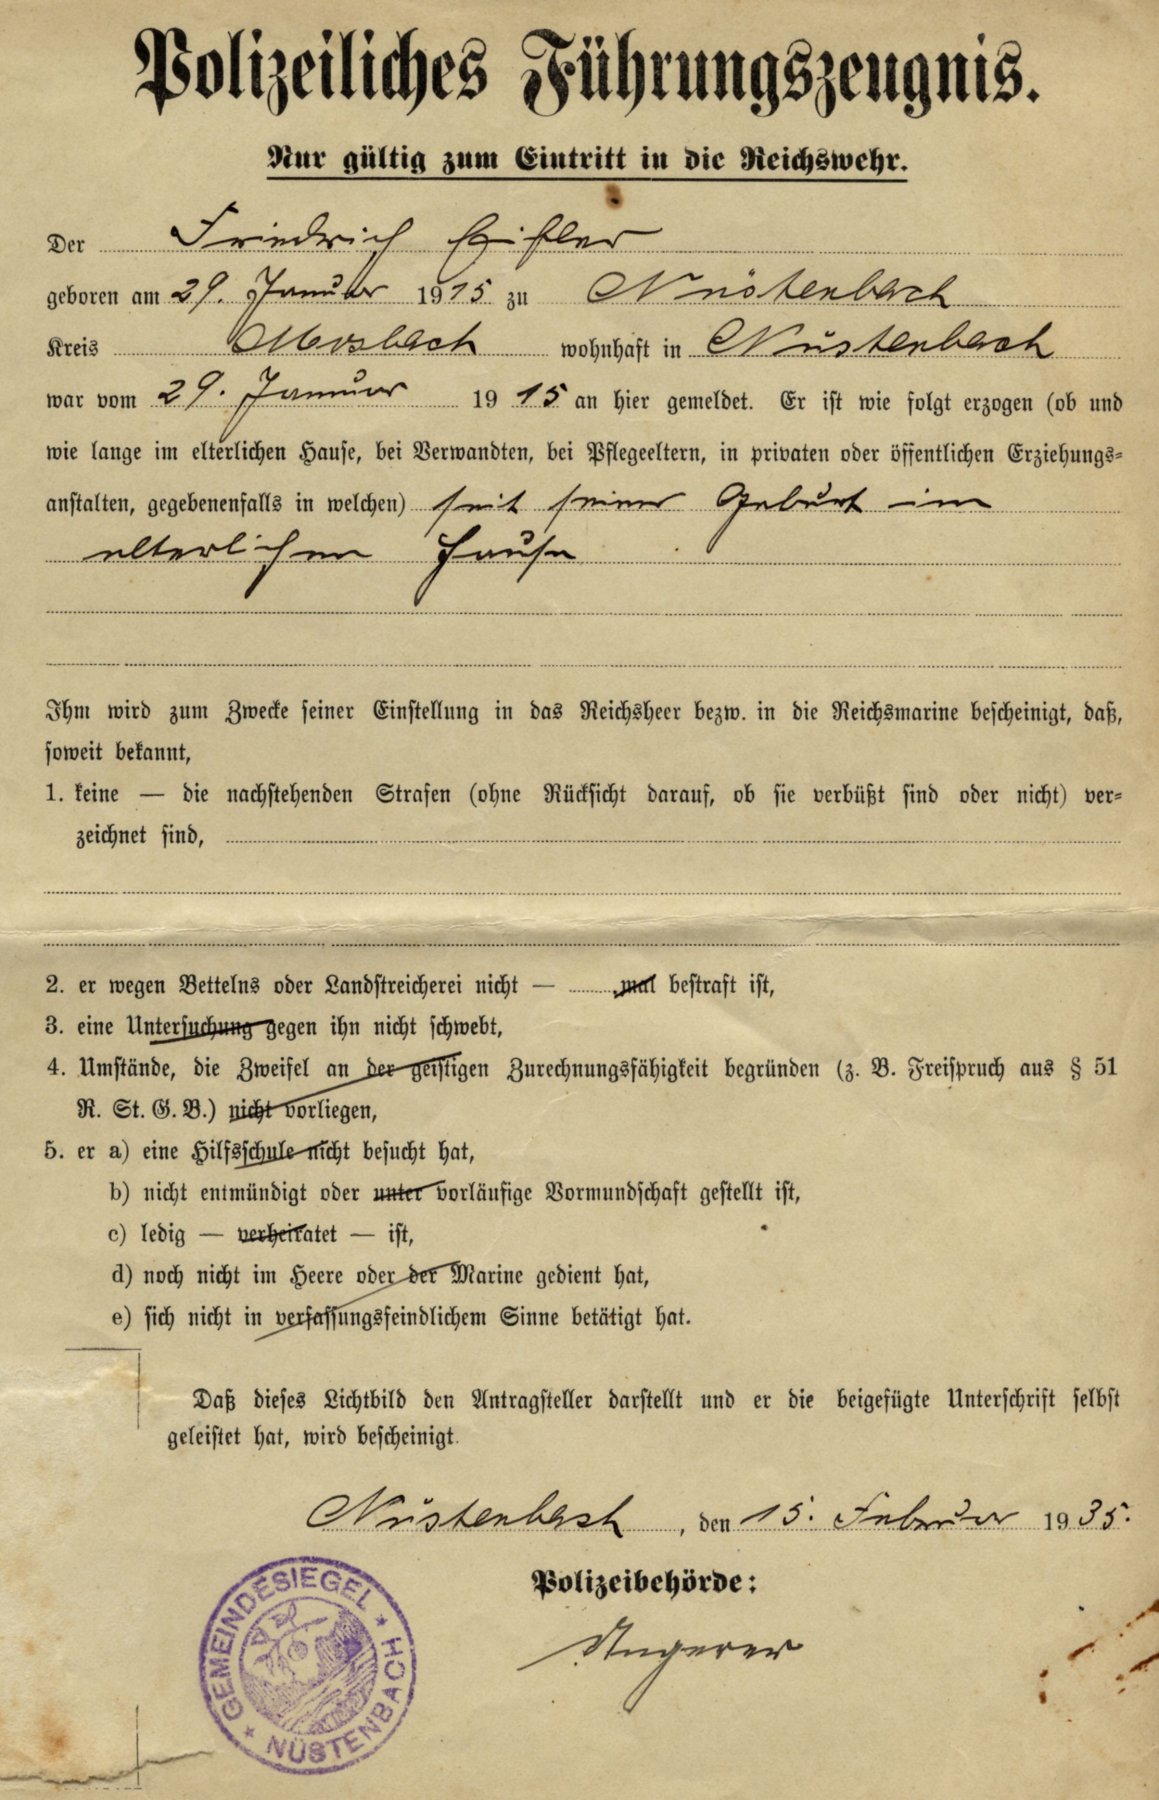 Polizeiliches Führungszeugnis.
Nur gültig zum Eintritt in die Reichswehr.
Der Friedrich
geboren am 29. Januar 1915 zu Nüstenbach
Kreis Mosbach wohnhaft in Nüstenbach
war vom 29. Januar 1915 an hier gemeldet. Er ist wie folgt erzogen (ob und
wie lange im elterlichen Hause, bei Verwandten, bei Pflegeeltern, in privaten oder öffentlichen Erziehungs-
anstalten, gegebenenfalls in welchen) seit seiner Geburt im
elterlichen Hause
Ihm wird zum Zwecke seiner Einstellung in das Reichsheer bezw. in die Reichsmarine bescheinigt, daß,
soweit bekannt,
1. keine — die nachstehenden Strafen (ohne Rücksicht darauf, ob sie verbüßt sind oder nicht) ver-
zeichnet sind,
2. er wegen Bettelns oder Landstreicherei nicht — mal bestraft ist,
3. eine Untersuchung gegen ihn nicht schwebt,
4. Umstände, die Zweifel an der geistigen Zurechnungsfähigkeit begründen (z. B. Freispruch aus § 51
R. St. G. B.) nicht vorliegen,
5. er a) eine Hilfsschule nicht besucht hat,
b) nicht entmündigt oder unter vorläufige Vormundschaft gestellt ist,
c) ledig — verheiratet — ist,
d) noch nicht im Heere oder der Marine gedient hat,
e) sich nicht in verfassungsfeindlichem Sinne betätigt hat.
Daß dieses Lichtbild den Antragsteller darstellt und er die beigefügte Unterschrift selbst
geleistet hat, wird bescheinigt.
Nüstenbach, den 15. Februar 1935.
Polizeibehörde:
Ungerer
GEMEINDESIEGEL
NÜSTENBACH